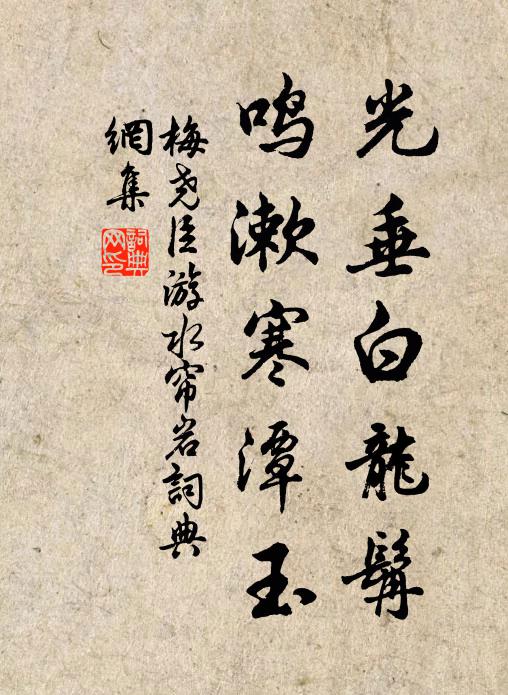 光垂白龍髯
鳴漱寒潭玉
梅堯臣游水帘岩詞典
網集
詞典
网印